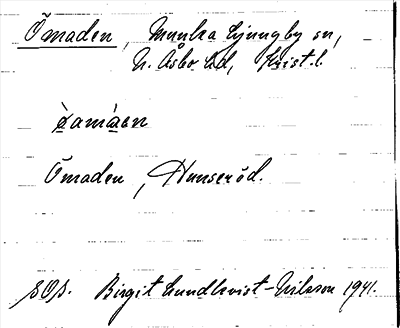 Ömaden, Munka Ljungby sn,
N. Åsbo hd, Krist. l.
Ömaden, Hunseröd.
SOB. Birgit Lundkvist-Nilsson 1941.